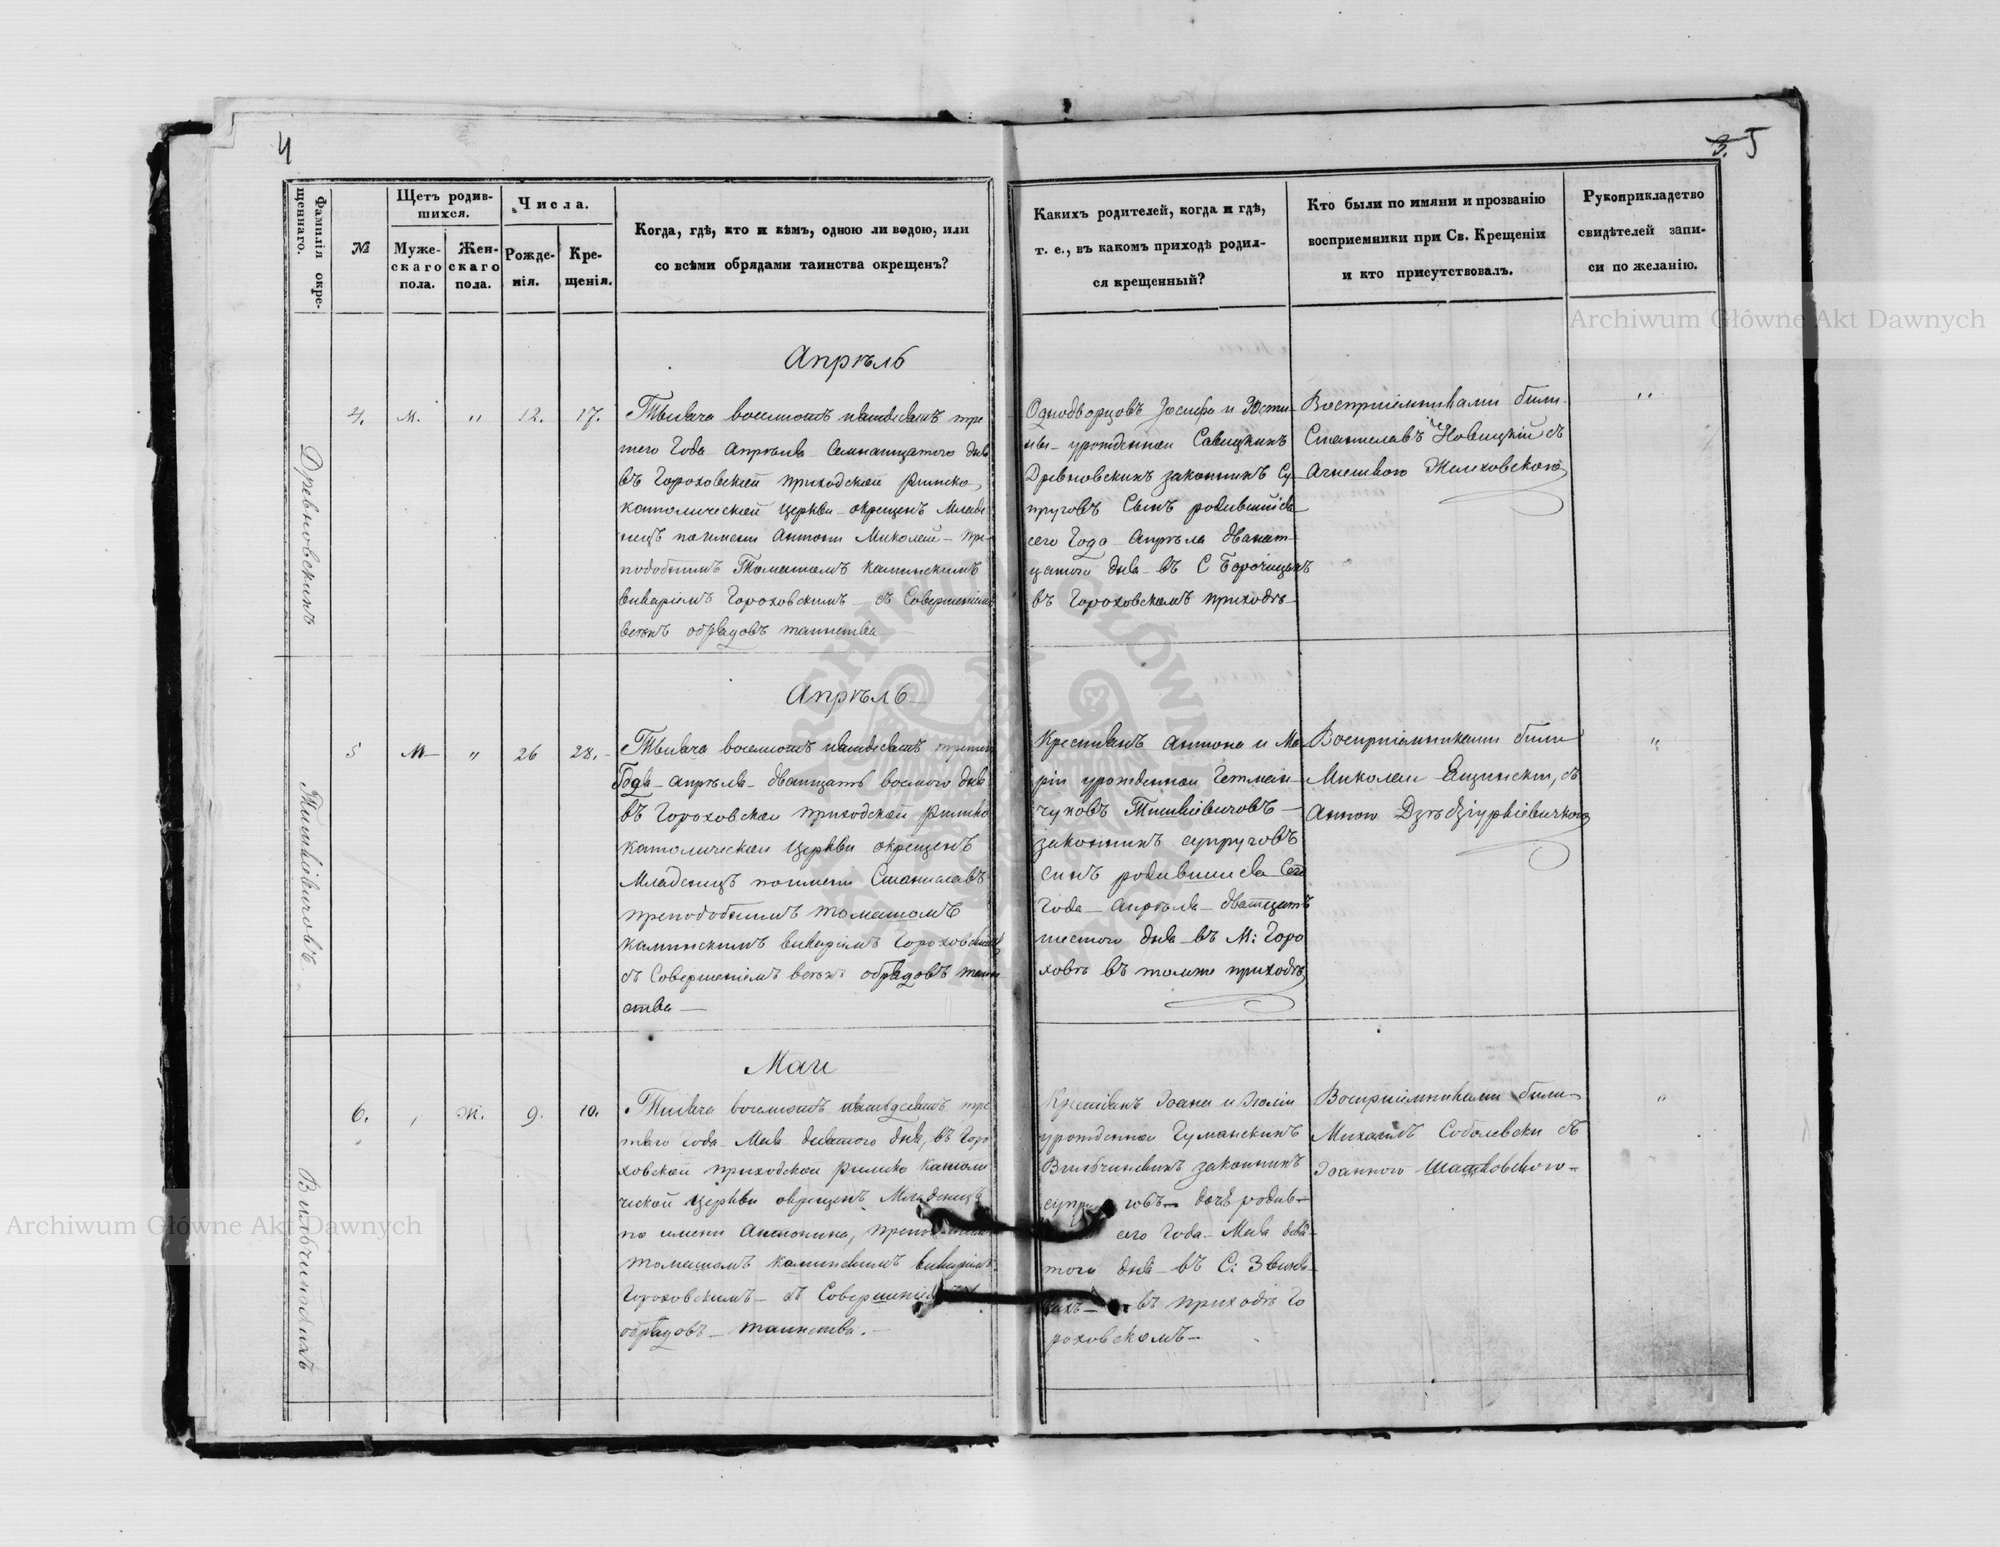 4
3. 5
Фамилія окре-
щеннаго.
№
Щетъ родив-
шихся.
Муже-
скаго
пола.
Жен-
скаго
пола.
Числа.
Рожде-
нія.
Кре-
щенія.
Когда, гдѣ, кто и кѣмъ, одною ли водою, или
со всѣми обрядами таинства окрещенъ?
Какихъ родителей, когда и гдѣ,
т. е., въ какомъ приходѣ родил-
ся крещенный?
Кто были по имяни и прозванію
восприемники при Св. Крещеніи
и кто присутствовалъ.
Рукоприкладетво
свидѣтелей запи-
си по желанію.
Древновскихъ
4. м. " 12. 17.
Апрѣль
Тысяча восемсотъ пятдесятъ тре
тего Года Апрѣля Семнатцатого дня
въ Гороховской приходской Римско
католической Церкви окрещенъ Младе
нецъ по имени Антони Миколай – пре
подобнымъ Томашомъ Каминскимъ
викаріемъ Гороховскимъ – съ Совершеніемъ
всѣхъ обрядовъ таинства
Однодворцовъ Іосифа и Юсти
ны урожденной Савицкихъ
Древновскихъ законныхъ Су
пруговъ Сынъ родившійся
сего Года Апрѣля дванат
цатого дня въ С Борочицахъ
въ Гороховскомъ приходѣ
Восприемниками были
Станиславъ Новицкій съ
Агнешкою Желеховского
"
Тишкевичовъ
5 М " 26 28.
Апрѣль
Тысяча восемсотъ пятдесятъ третего
Года апрѣля дватцать восмого дня
въ Гороховской приходской Римско
католической Церкви окрещенъ
Младенецъ по имени Станиславъ
преподобнымъ Томашомъ
Каминскимъ викаріемъ Гороховскимъ
съ Совершеніемъ всѣхъ обрядовъ таин
ства
Крестьянъ Антона и Ма
ріи урожденной Гетман
чуковъ Тишкіевичовъ
законныхъ супруговъ
сынъ родившійся Сего
Года Апрѣля двадцать
шестого дня въ М: Горо
ховѣ въ томже приходѣ
Восприемниками были
Миколай Ящински, съ
Анною
"
6. , ж. 9. 10.
Май
Тысяча восемсотъ пятьдесятъ тре
тяго года Мая десятого дня, въ Горо
ховской приходской Римско Католи
ческой Церкви окрещенъ Младенецъ
по имени Антонина,
Томашомъ Каминскимъ викаріемъ
Гороховскимъ – съ Совершеніемъ
обрядовъ таинства.
Крестьянъ Іоана и Юліи
урожденной Гуманскихъ
законныхъ
дочь родив
сего Года Мая девя
того дня въ С:
въ приходѣ Го
роховскомъ
Восприемниками были
Михаилъ Соболевски съ
Іоанною
"
Archiwum Główne Akt Dawnych
Archiwum Główne Akt Dawnych